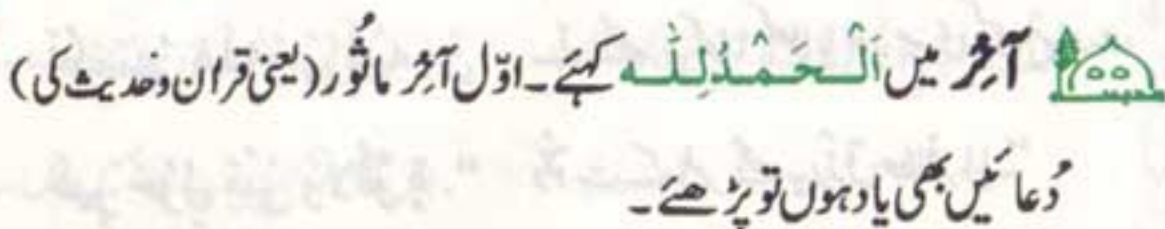 آخِر میں اَلْحَمْدُلِلّٰه کہئے۔ اوّل آخِر ماثُور (یعنی قراٰن وحدیث کی)
دُعائیں بھی یاد ہوں تو پڑھئے۔